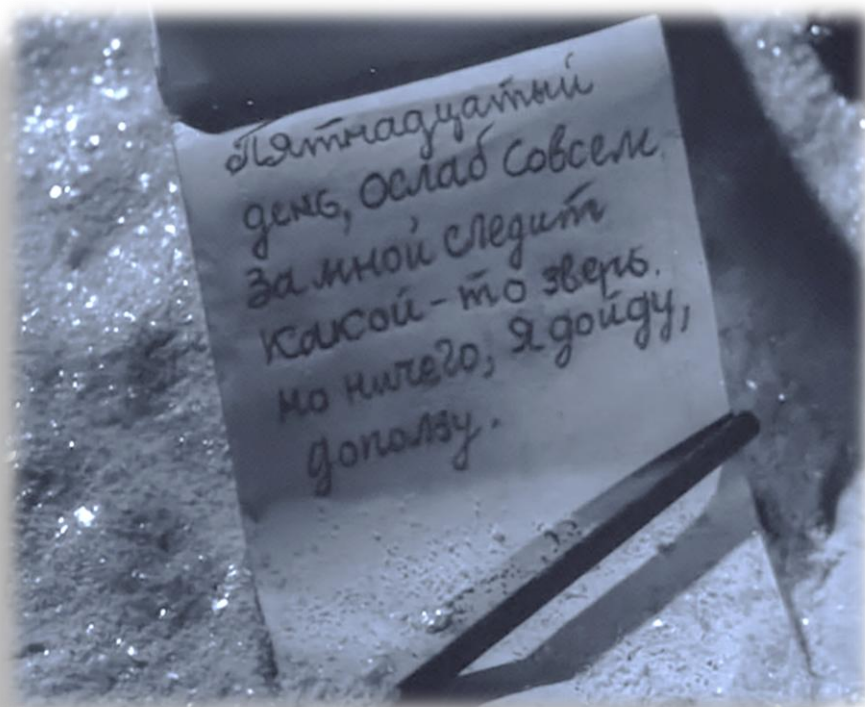 Пятнадцатый
день, ослаб совсем.
за мной следит
какой-то зверь.
но ничего, я дойду,
доползу.